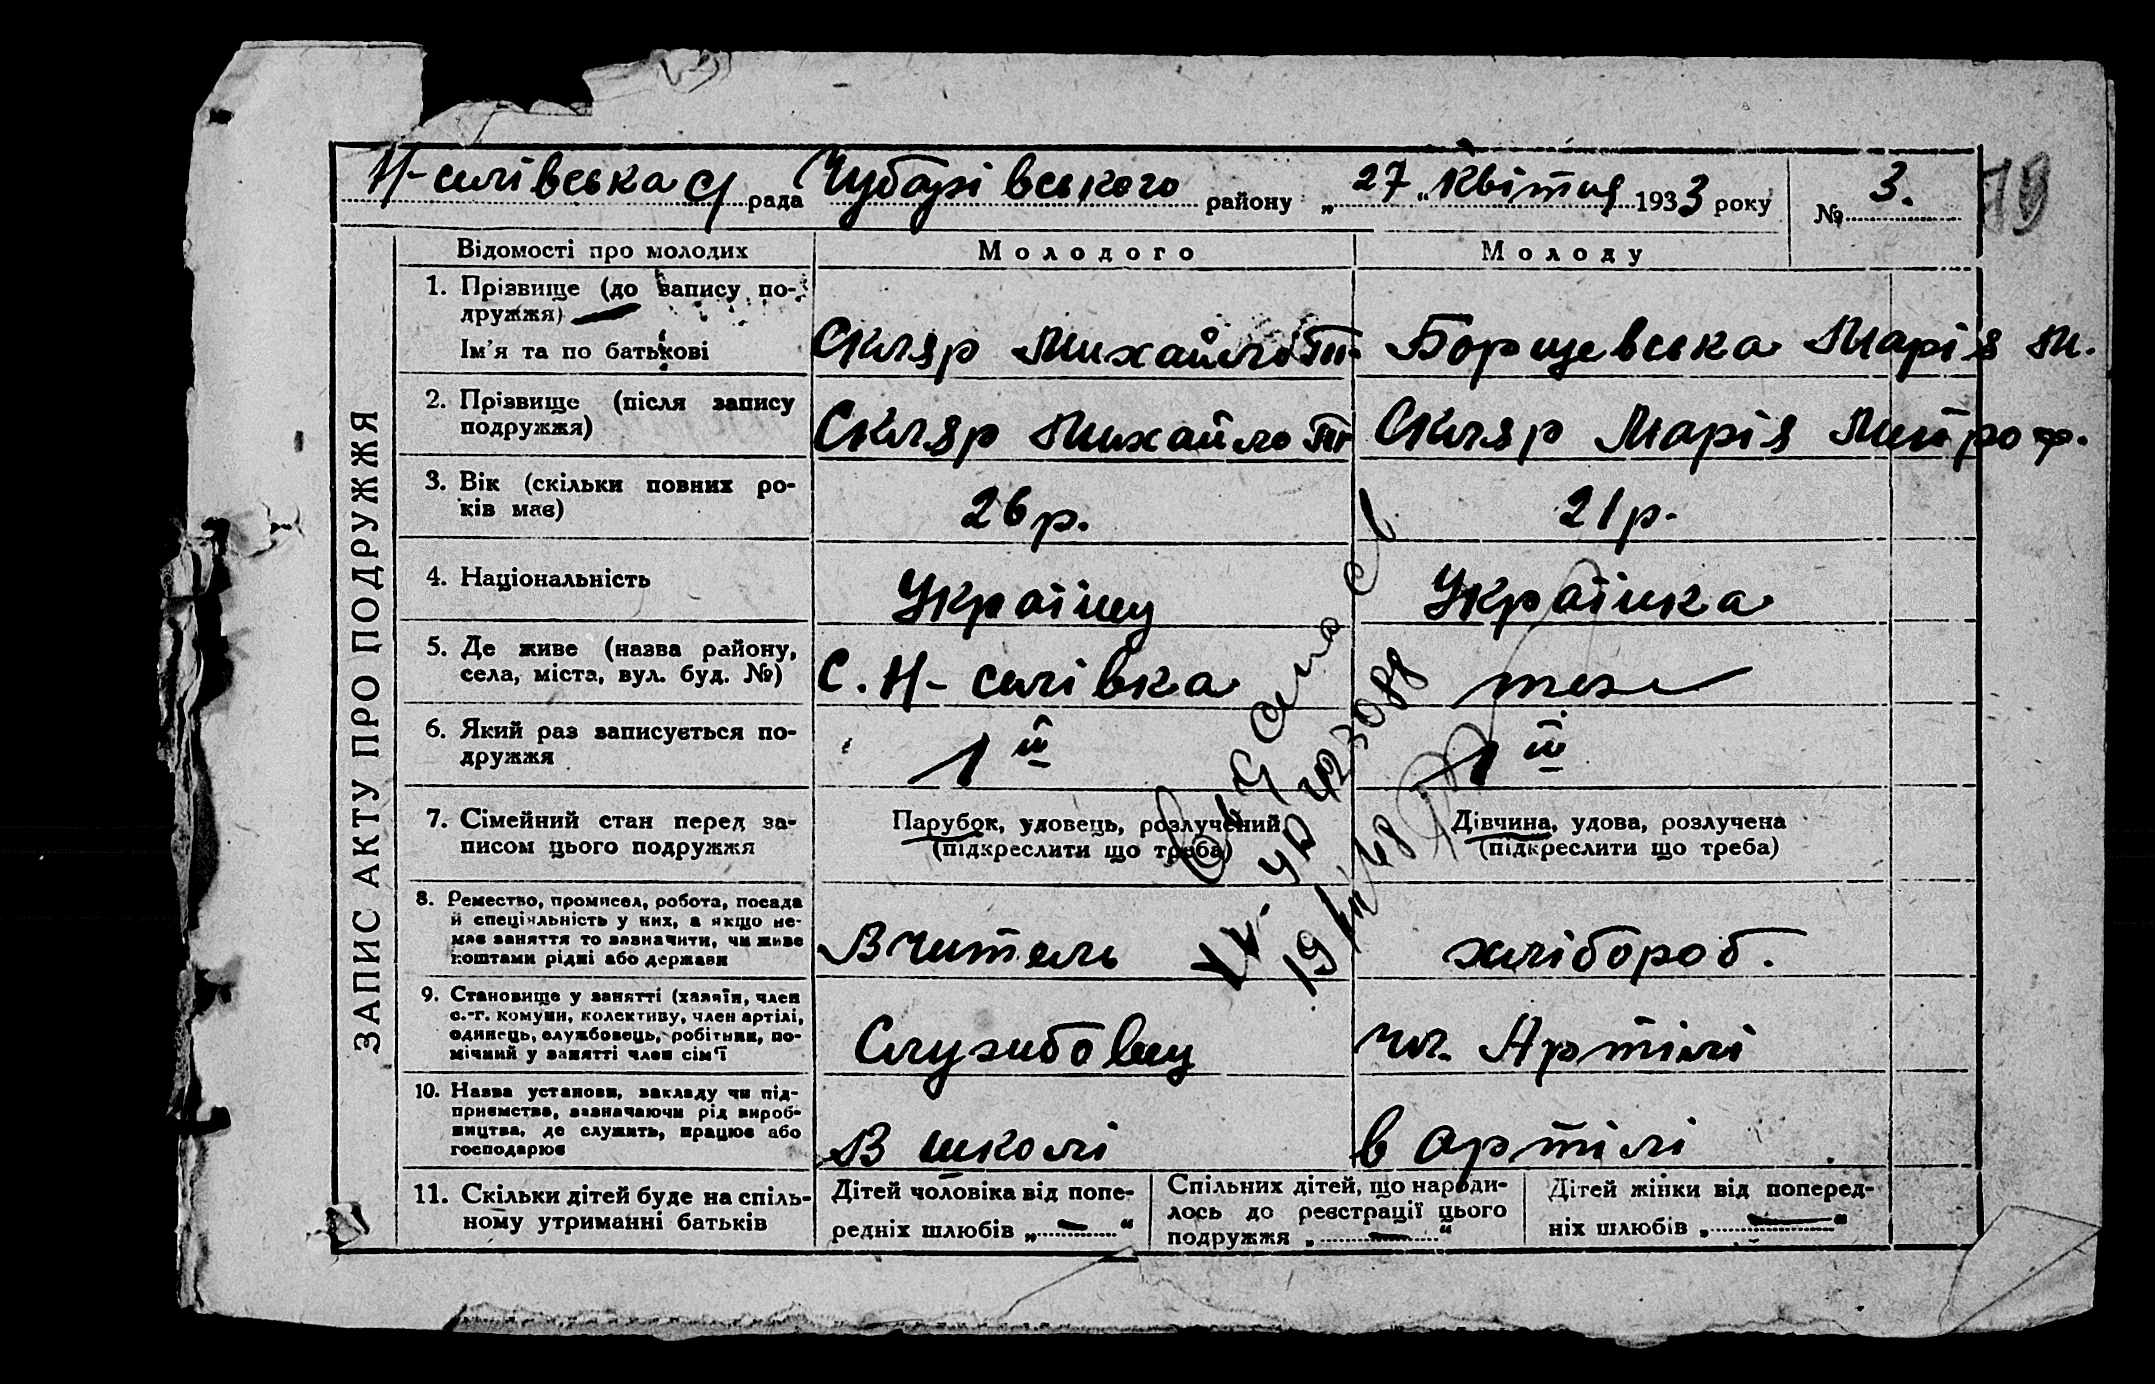 Н-силівська с/рада Чубарівського району „27" Квітня 1933 року № 3.
19
ЗАПИС АКТУ ПРО ПОДРУЖЖЯ
Відомості про молодих Молодого Молоду
1. Прізвище (до запису по-
дружжя)
Ім'я та по батькові Скляр Михайло Т. Борщевська Марія М.
2. Прізвище (після запису
подружжя) Скляр Михайло Т. Скляр Марія Митроф.
3. Вік (скільки повних ро-
ків має) 26 р. 21 р.
4. Національність Українц Українка
5. Де живе (назва району,
села, міста, вул. буд. №) С. Н-силівка теж
6. Який раз записується по-
дружжя 1й 1й
7. Сімейний стан перед за- Парубок, удовець, розлучений Дівчина, удова, розлучена
писом цього подружжя (підкреслити що треба) (підкреслити що треба)
8. Ремество, промисел, робота, посада
й спеціяльність у них, а якщо не-
має заняття то зазначити, чи живе
коштами рідні або держави Вчитель хлібороб.
9. Становище у занятті (хазяїн, член
с.-г. комуни, колективу, член артілі,
одинець, службовець, робітник, по-
мічний у занятті член сім'ї Службовец чл. Артілі
10. Назва установи, закладу чи під-
приємства, зазначаючи рід вироб-
ництва, де служить, працює або
господарює В школі в артілі
11. Скільки дітей буде на спіль-
ному утриманні батьків
Дітей чоловіка від попе-
редніх шлюбів „—"
Спільних дітей, що народи-
лось до реєстрації цього
подружжя „—"
Дітей жінки від поперед-
ніх шлюбів „—"